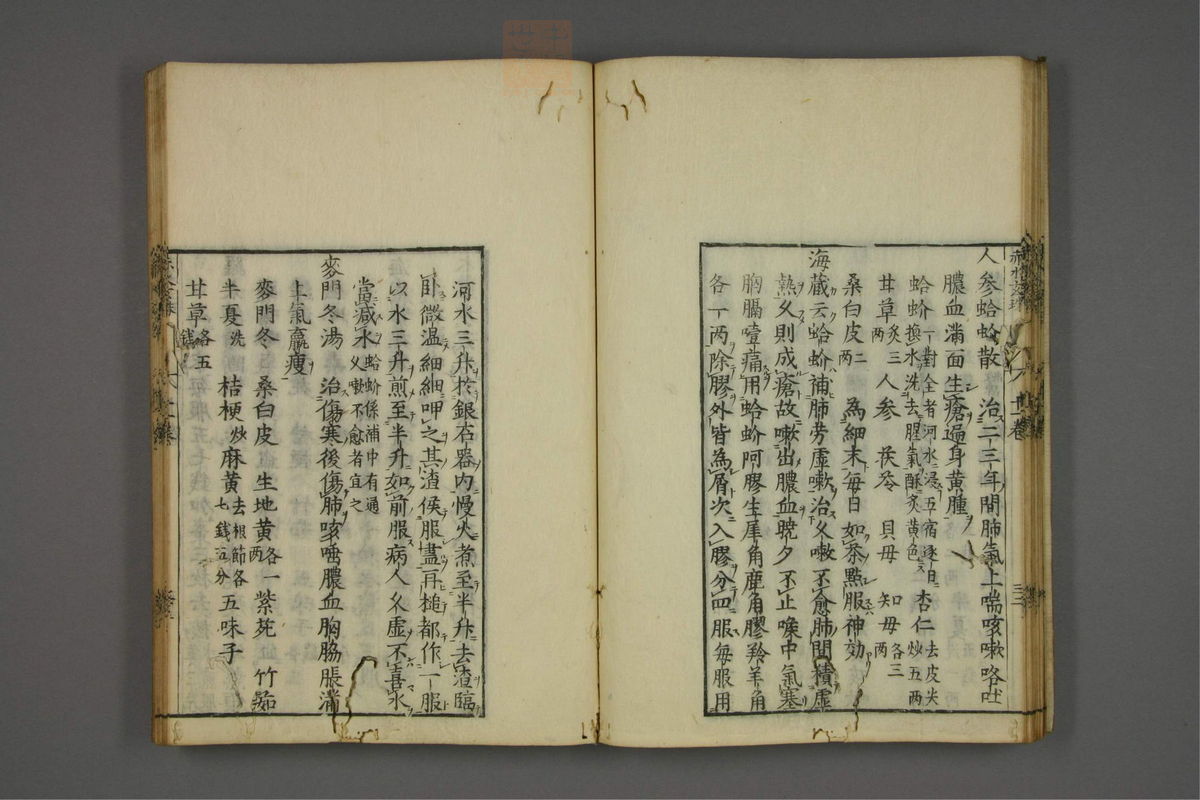 人参蛤蚧散 治二三年間肺氣上喘咳嗽咯吐
膿血滿面生瘡遍身黃腫
蛤蚧 一對全者河水浸五宿逐日換水洗去腥氣酥炙黃色 杏仁 去皮尖炒五兩
甘草 炙三兩 人参 茯苓 貝母 知母 各三兩
桑白皮 二兩 為細末每日如茶點服神効
海藏云蛤蚧補肺劳虛嗽治久嗽不愈肺間積虛
熱久則成瘡故嗽出膿血曉夕不止喉中氣塞
胸膈噎痛用蛤蚧阿膠生犀角鹿角膠羚羊角
各一两除膠外皆為屑次入膠分四服每服用
河水三升於銀石器内慢火煮至半升去渣臨
卧微温細細呷之其渣候服盡再搥都作一服
以水三升煎至半升如前服病人久虛不喜水
當減水 蛤蚧係補中有通久嗽不愈者宜之
麥門冬湯 治傷寒後傷肺咳唾膿血胸脇脹滿
上氣羸瘦
麥門冬 桑白皮 生地黄 各一兩 紫苑 竹茹
半夏 洗 桔梗 炒 麻黄 去根節各七錢五分 五味子
甘草 各五錢